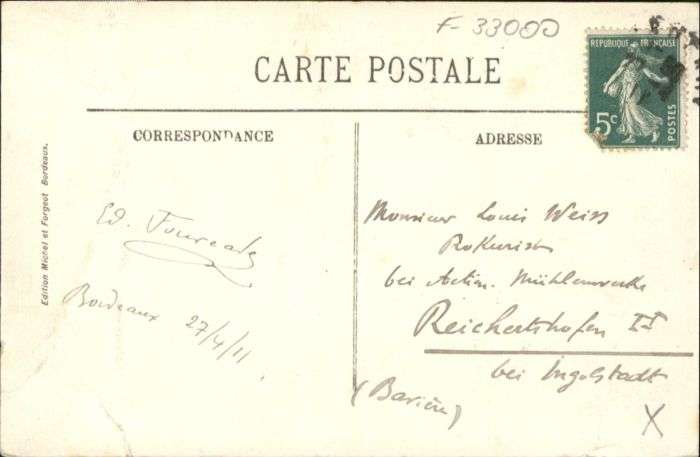 F-33000
CARTE POSTALE
REPUBLIQUE FRANÇAISE
5c
POSTES
CORRESPONDANCE
ADRESSE
Edition Michel et Forgeot Bordeaux.
Ed.
Bordeaux 27/4/11
Monsieur Louis Weiss
Prokurist
bei Actien. Mühlenwerke
Reichertshofen II
bei Ingolstadt
(Bavière)
X